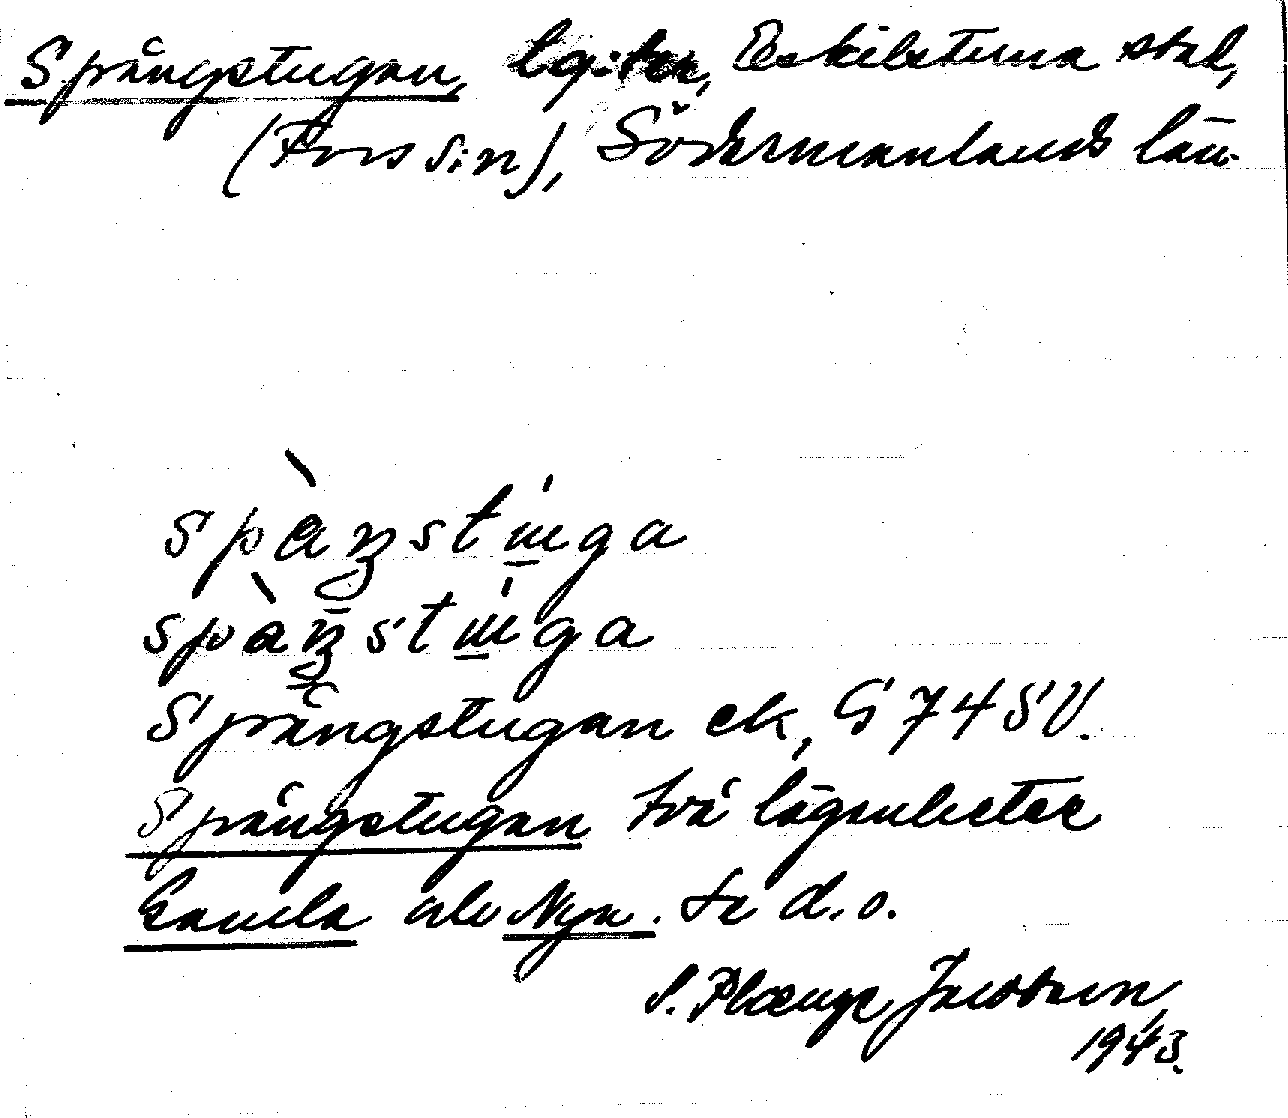 Spångstugan, lgiter, Eskilstuna stad,
(Fors sn), Södermanlands län.
spàŋstu̲'ga
spàŋstu̲'ga
Spångstugan ek, G 74 SV.
Spångstugan två lägenheter
Gamla och Nya. Se d.o.
S. Plænge Jacobson
1943.